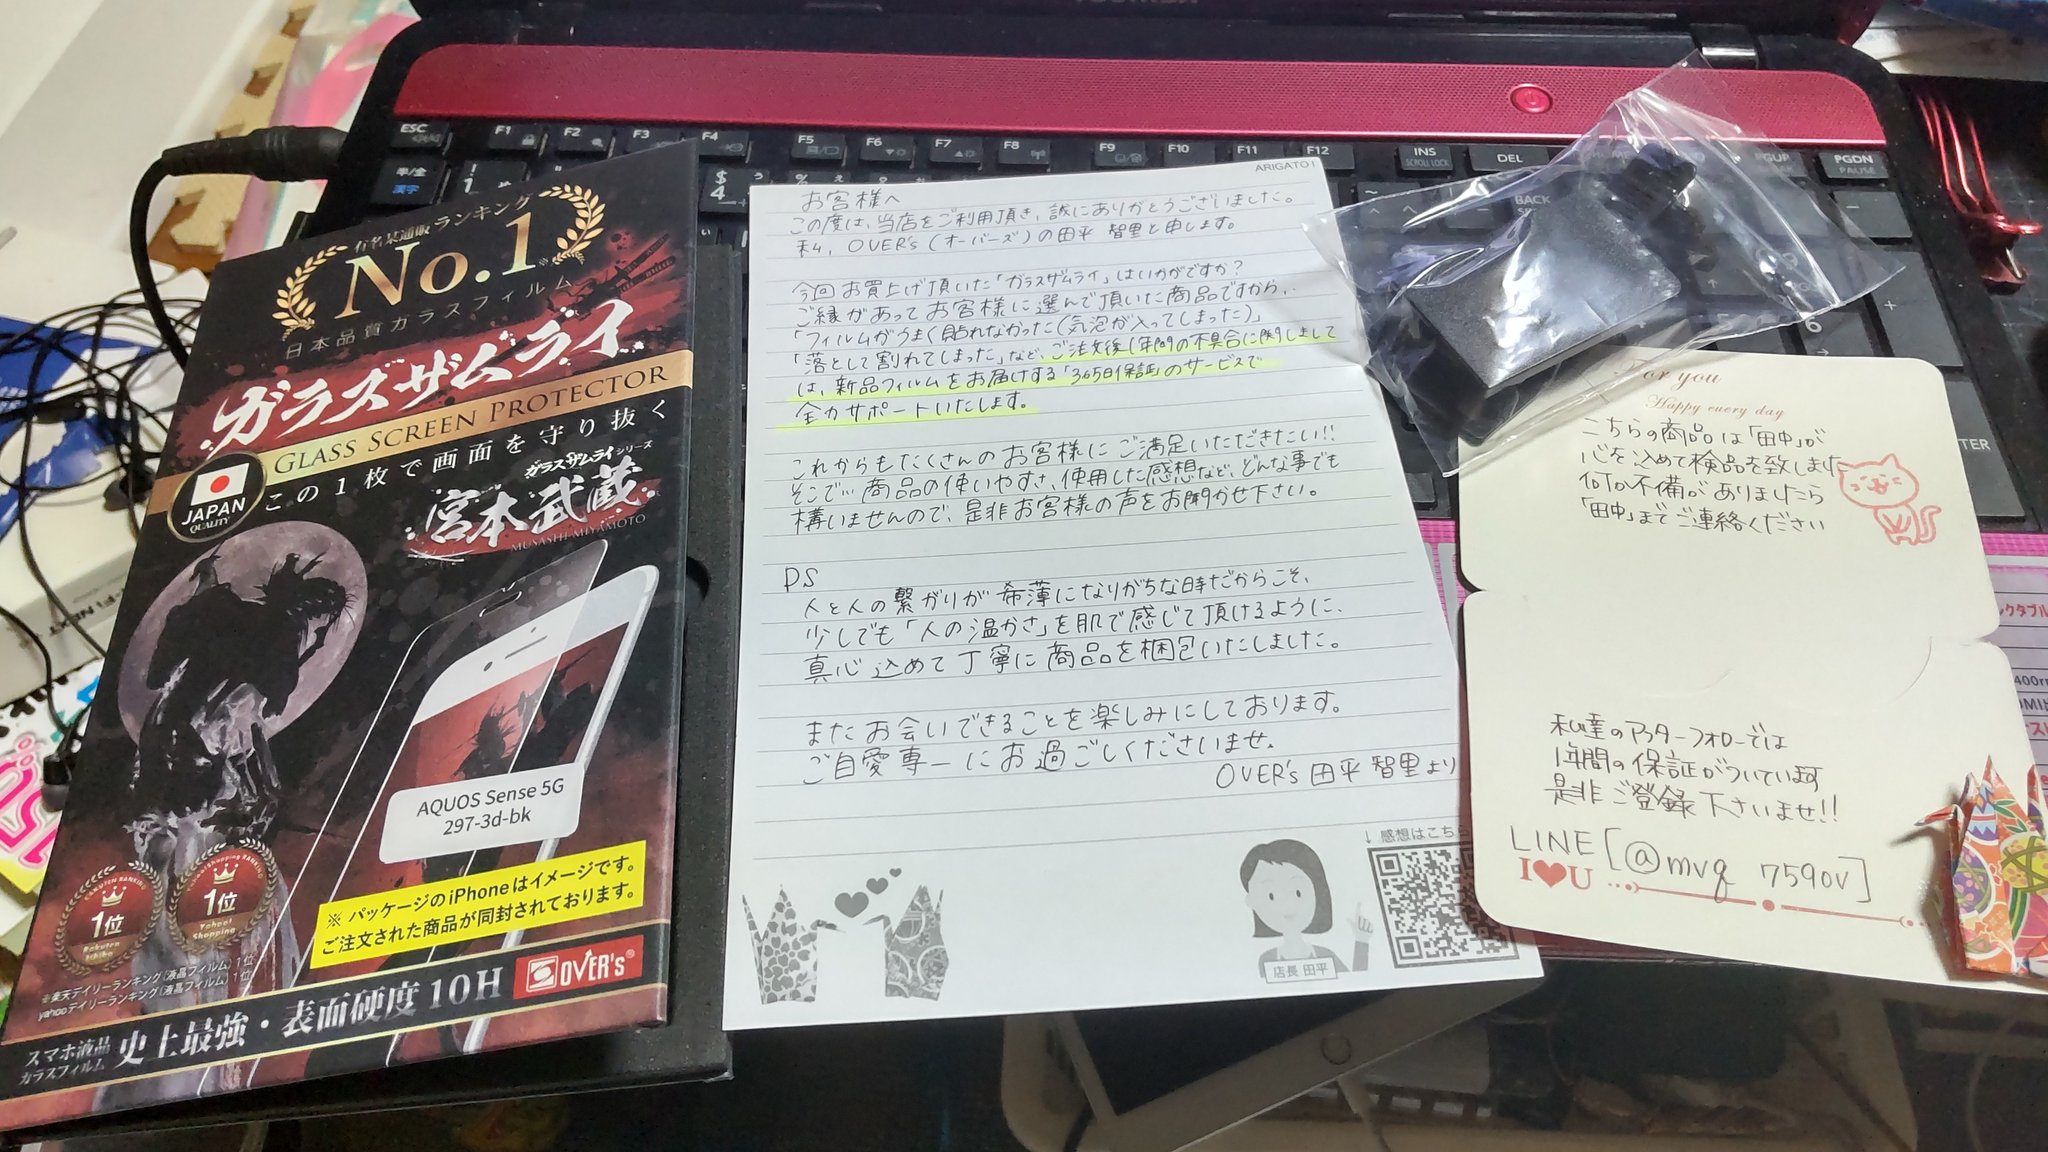 有名某通販ランキング
No.1
※
日本品質ガラスフィルム
ガラスザムライ
GLASS SCREEN PROTECTOR
この1枚で画面を守り抜く
JAPAN
QUALITY
ガラスザムライシリーズ
宮本武蔵
MUSASHI MIYAMOTO
AQUOS Sense 5G
297-3d-bk
※ パッケージのiPhoneはイメージです。
ご注文された商品が同封されております。
RAKUTEN RANKING
1位
Rakuten
Ichiba
1位
Yahoo!
Shopping
※楽天デイリーランキング(液晶フィルム)1位
yahooデイリーランキング(液晶フィルム)1位
OVER's
スマホ液晶
ガラスフィルム
史上最強・表面硬度10H
ARIGATO!
お客様へ
この度は、当店をご利用頂き、誠にありがとうございました。
私、OVER's(オーバーズ)の田平 智里と申します。
今回お買上げ頂いた「ガラスザムライ」はいかがですか?
ご縁があってお客様に選んで頂いた商品ですから、
「フィルムがうまく貼れなかった(気泡が入ってしまった)」
「落として割れてしまった」など、ご注文後1年間の不具合に関しまして
は、新品フィルムをお届けする「365日保証」のサービスで
全力サポートいたします。
これからもたくさんのお客様にご満足いただきたい!!
そこで…商品の使いやすさ、使用した感想など、どんな事でも
構いませんので、是非お客様の声をお聞かせ下さい。
PS
人と人の繋がりが希薄になりがちな時だからこそ、
少しでも「人の温かさ」を肌で感じて頂けるように、
真心込めて丁寧に商品を梱包いたしました。
またお会いできることを楽しみにしております。
ご自愛専一にお過ごしくださいませ。
OVER's 田平 智里より
↓感想はこちら
店長 田平
For you
Happy every day
こちらの商品は「田中」が
心を込めて検品を致しました
何か不備がありましたら
「田中」までご連絡ください
私達のアフターフォローでは
1年間の保証がついています
是非ご登録下さいませ!!
LINE[@mvq 7590v]
I♥U
ESC
F1
F2
F3
F4
F5
F6
F7
F8
F9
F10
F11
F12
INS
SCROLL LOCK
DEL
PGUP
PGDN
PAUSE
半/全
漢字
BACK